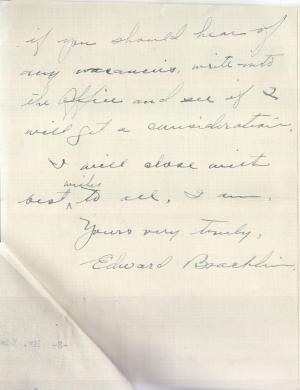 if you should hear of
any vacancies, write into
the Office and see if I
will get a consideration.
I will close with
best wishes to all, I am,
Yours very truly,
Edward